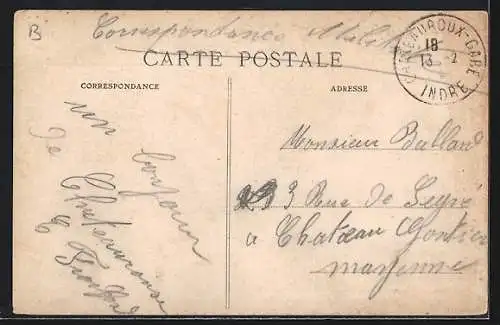 B
Correspondance Militaire
CARTE POSTALE
CHATEAUROUX-GARE
18
13 -2
INDRE
CORRESPONDANCE
ADRESSE
un bonjour
De Chateauroux
E
Monsieur Balland
3 Rue De
a Chateau Gontier
mayenne